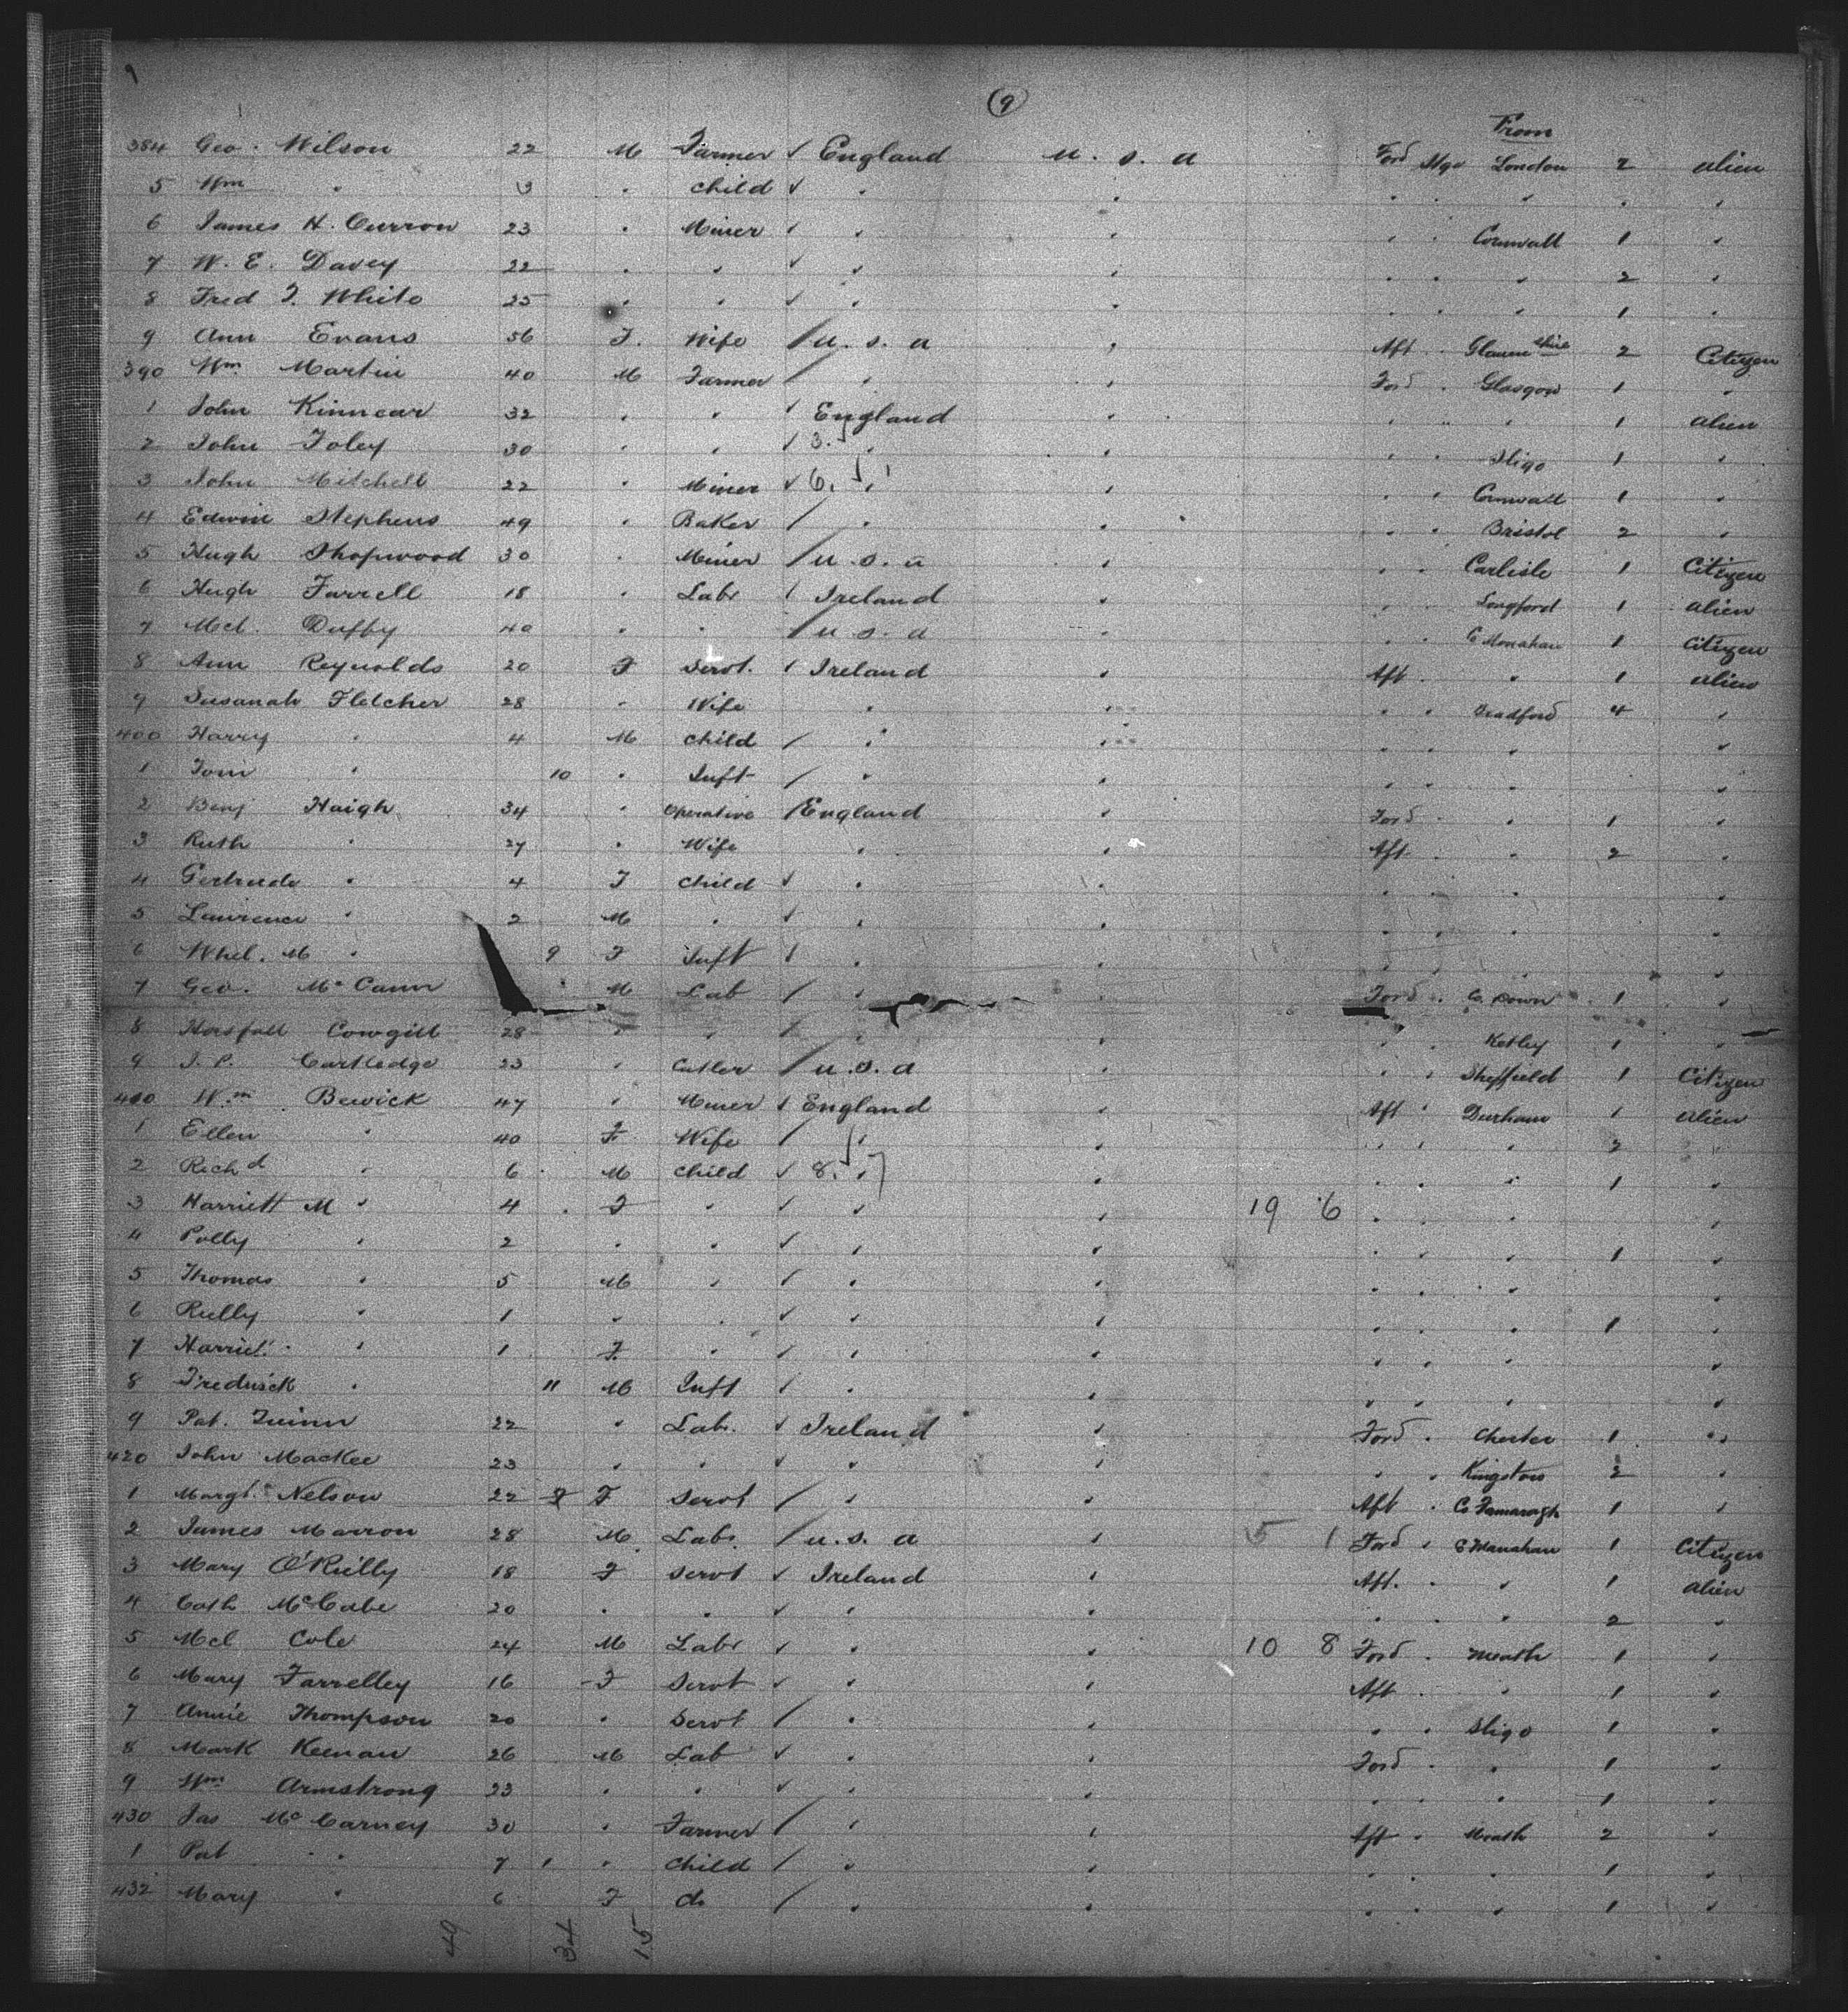 9
From
384 Geo. Wilson 22 M Farmer ✓ England U. S. A Ford Mgo London 2 alien
5 Wm " 3 " child ✓ " " " " " " "
6 James H. Curron 23 " Miner ✓ " " " " Cornwall 1 "
7 W. E. Davey 22 " " ✓ " " " " " 2 "
8 Fred J. White 25 " " ✓ " " " " " 1 "
9 Ann Evans 56 F. Wife / U. S. A " Aft " 2 Citizen
390 Wm Martin 40 M Farmer / " " Ford " Glasgow 1 "
1 John Kinnear 32 " " ✓ England " " " " 1 alien
2 John Foley 30 " " / 3. " " " " Sligo 1 "
3 John Mitchell 22 " Miner ✓ 6. " " " " Cornwall 1 "
4 Edwin Stephens 49 " Baker / " " " " Bristol 2 "
5 Hugh Shopwood 30 " Miner / U. S. A " " " Carlisle 1 Citizen
6 Hugh Farrell 18 " Labr / Ireland " " " Longford 1 alien
7 Mcl. Duffy 40 " " / U. S. A " " " C Monahan 1 Citizen
8 Ann Reynolds 20 F Servt. / Ireland " Aft " " 1 alien
9 Susanah Fletcher 28 " Wife " " " " Bradford 4 "
400 Harry " 4 M child / " " " " " "
1 Tom " 10 " Inft / " " " " " "
2 Benj Haigh 34 " Operative / England " Ford " " 1 "
3 Ruth " 27 " Wife " " Aft " " 2 "
4 Gertrude " 4 F Child ✓ " " " " " "
5 Lawrence " 2 M " ✓ " " " " " "
6 Whel. M " 9 F Inft / " " " " " "
7 Geo. McCann M Lab / " " Ford " Co. Down 1 "
8 Horsfall Cowgill 28 " " / " " " " 1 "
9 J. P. Cartledge 23 " Cutler / U. S. A " " " Sheffield 1 Citizen
400 Wm Bewick 47 " Miner / England " Aft " Durham 1 alien
1 Ellen " 40 F Wife / " " " " " 2
2 Richd " 6 M child ✓ 8. " " " " " 1 "
3 Harriett M " 4 F " ✓ " " 19 6 " " "
4 Polly " 2 " " ✓ " " " " " 1 "
5 Thomas " 5 M " ✓ " " " " " "
6 " 1 " " ✓ " " " " " 1 "
7 Harriet " 1 F " ✓ " " " " " "
8 Fredrick " 11 M Inft / " " " " " "
9 Pat. Quinn 22 " Labr. ✓ Ireland " Ford " Chester 1 "
420 John MacKee 23 " " ✓ " " " " Kingston 2 "
1 Margt. Nelson 22 F F Servt / " " Aft " 1 "
2 James Marron 28 M Labr / U. S. A " 5 1 Ford " C Monahan 1 Citizen
3 Mary O'Rielly 18 F Servt ✓ Ireland " Aft. " " 1 alien
4 Cath McCabe 20 " " ✓ " " " " " 2 "
5 Mcl Cole 24 M Labr ✓ " " 10 8 Ford " Meath 1 "
6 Mary Farrelley 16 F Servt ✓ " " Aft " " 1 "
7 Annie Thompson 20 " Servt / " " " " Sligo 1 "
8 Mark Keenan 26 M Lab ✓ " " Ford " " 1 "
9 Wm Armstrong 23 " " ✓ " " " " " 1 "
430 Jas McCarney 30 " Farmer / " " Aft " Meath 2 "
1 Pat " 7 1 " Child / " " " " " 1 "
432 Mary " 6 F do / " " " " " 1 "
49 34 15